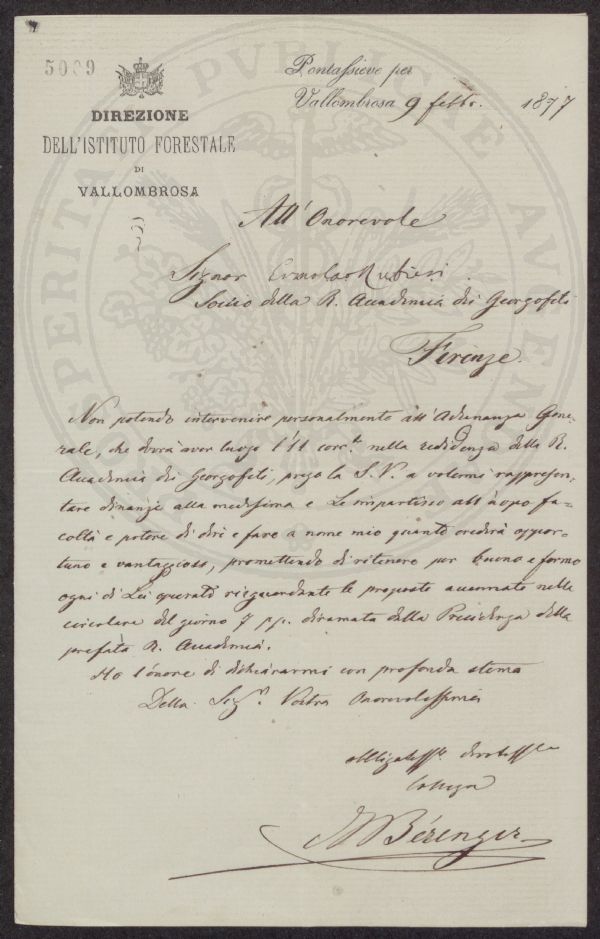 5009
DIREZIONE
DELL'ISTITUTO FORESTALE
DI
VALLOMBROSA
Pontassieve per
Vallombrosa 9 febbr. 1877
All' Onorevole
Signor Ermolao Rubieri
Socio della R. Accademia dei Georgofili
Firenze.
Non potendo intervenire personalmente all' Adunanza Gene-
rale, che dovrà aver luogo l'11 corr.te nella residenza della R.
Accademia dei Georgofili, prego la S.V. a volermi rappresen-
tare dinanzi alla medesima e Le impartisco all'uopo fa-
coltà e potere di dire e fare a nome mio quanto crederà oppor-
tuno e vantaggioso, promettendo di ritenere per buono e fermo
ogni di Lei operato risguardante le proposte accennate nella
circolare del giorno 7 pp. diramata della Presidenza della
prefata R. Accademia.
Ho l'onore di dichiararmi con profonda stima
Della Sig.a Vostra Onorevolissima
Collega
Bérenger
PROSPERITATI PVBLICAE AVGENDAE